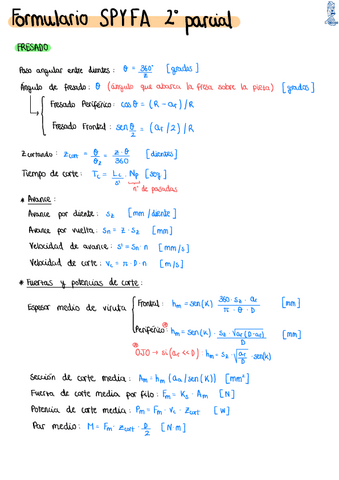 Formulario SPYFA 2º parcial
FRESADO
Paso angular entre dientes : θ = 360° / z [grados]
Ángulo de fresado : θ (ángulo que abarca la fresa sobre la pieza) [grados]
Fresado Periférico : cos θ = (R - ar) / R
Fresado Frontal : sen θ/2 = (ar / 2) / R
z cortando : zcort = θ / θz = z · θ / 360 [dientes]
Tiempo de corte : Tc = Lc / s' · Np [seg]
nº de pasadas
* Avance :
Avance por diente : sz [mm / diente]
Avance por vuelta : sn = z · sz [mm]
Velocidad de avance : s' = sn · n [mm / s]
Velocidad de corte : vc = π · D · n [m / s]
* Fuerzas y potencias de corte :
Espesor medio de viruta
Frontal : hm = sen(K) · 360 · sz · ar / π · θ · D [mm]
Periférico : hm = sen(K) · sz · √ar (D - ar) / D [mm]
OJO → si (ar << D) · hm = sz · √ar / D · sen(K)
Sección de corte media : Am = hm (aa / sen(K)) [mm²]
Fuerza de corte media por filo : Fm = Ks · Am [N]
Potencia de corte media : Pm = Fm · vc · zcort [W]
Par medio : M = Fm · zcort · D / 2 [N·m]